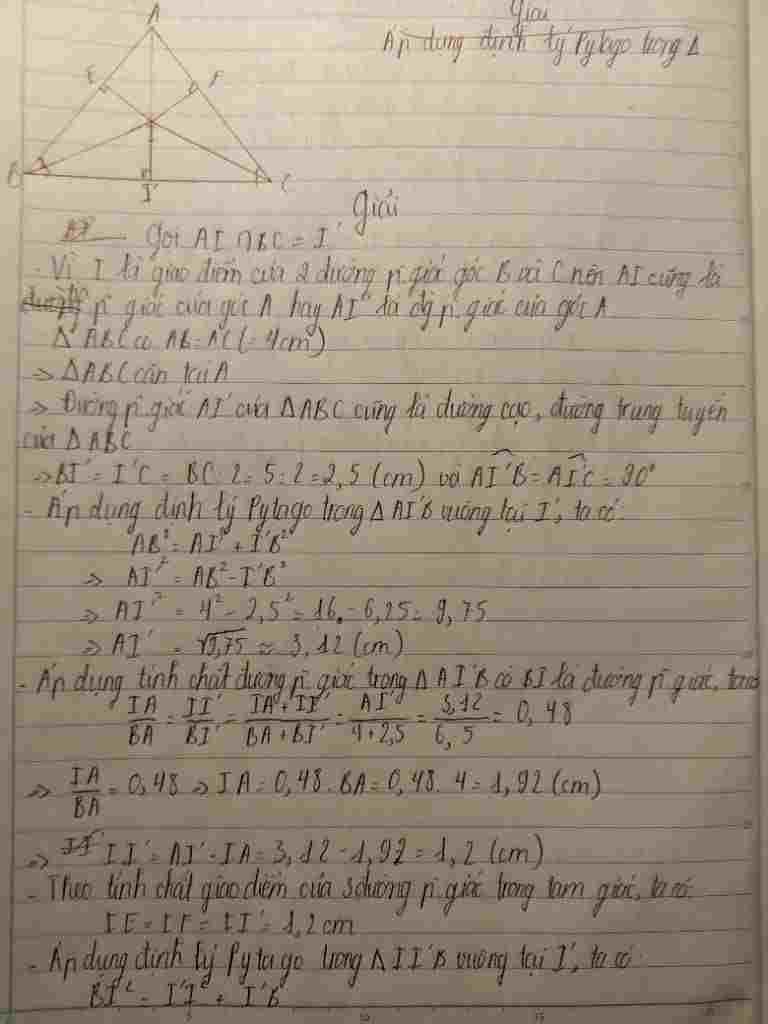 Giải
Áp dụng định lý Pytago trong Δ
A
E
F
B
I'
C
Giải
Gọi AI ∩ BC = I'
- Vì I là giao điểm của 2 đường pi giác góc B và C nên AI cũng là
pi giác của góc A hay AI' là đg pi giác của góc A
ΔABC có AB=AC(=4cm)
=> ΔABC cân tại A
=> Đường pi giác AI' của ΔABC cũng là đường cao, đường trung tuyến
của ΔABC
=> BI' = I'C = BC:2 = 5:2 = 2,5 (cm) và AI'B = AI'C = 90°
- Áp dụng định lý Pytago trong ΔAI'B vuông tại I', ta có:
AB² = AI'² + I'B²
=> AI'² = AB² - I'B²
=> AI'² = 4² - 2,5² = 16 - 6,25 = 9,75
=> AI' = √9,75 ≈ 3,12 (cm)
- Áp dụng tính chất đường pi giác trong ΔAI'B có BI là đường pi giác, ta có
IA/BA = II'/BI' = IA+II'/BA+BI' = AI'/4+2,5 = 3,12/6,5 = 0,48
=> IA/BA = 0,48 => IA = 0,48.BA = 0,48.4 = 1,92 (cm)
=> II' = AI' - IA = 3,12 - 1,92 = 1,2 (cm)
- Theo tính chất giao điểm của 3 đường pi giác trong tam giác, ta có:
IE = IF = II' = 1,2 cm
- Áp dụng định lý Pytago trong ΔII'B vuông tại I', ta có:
BI² = I'I² + I'B²